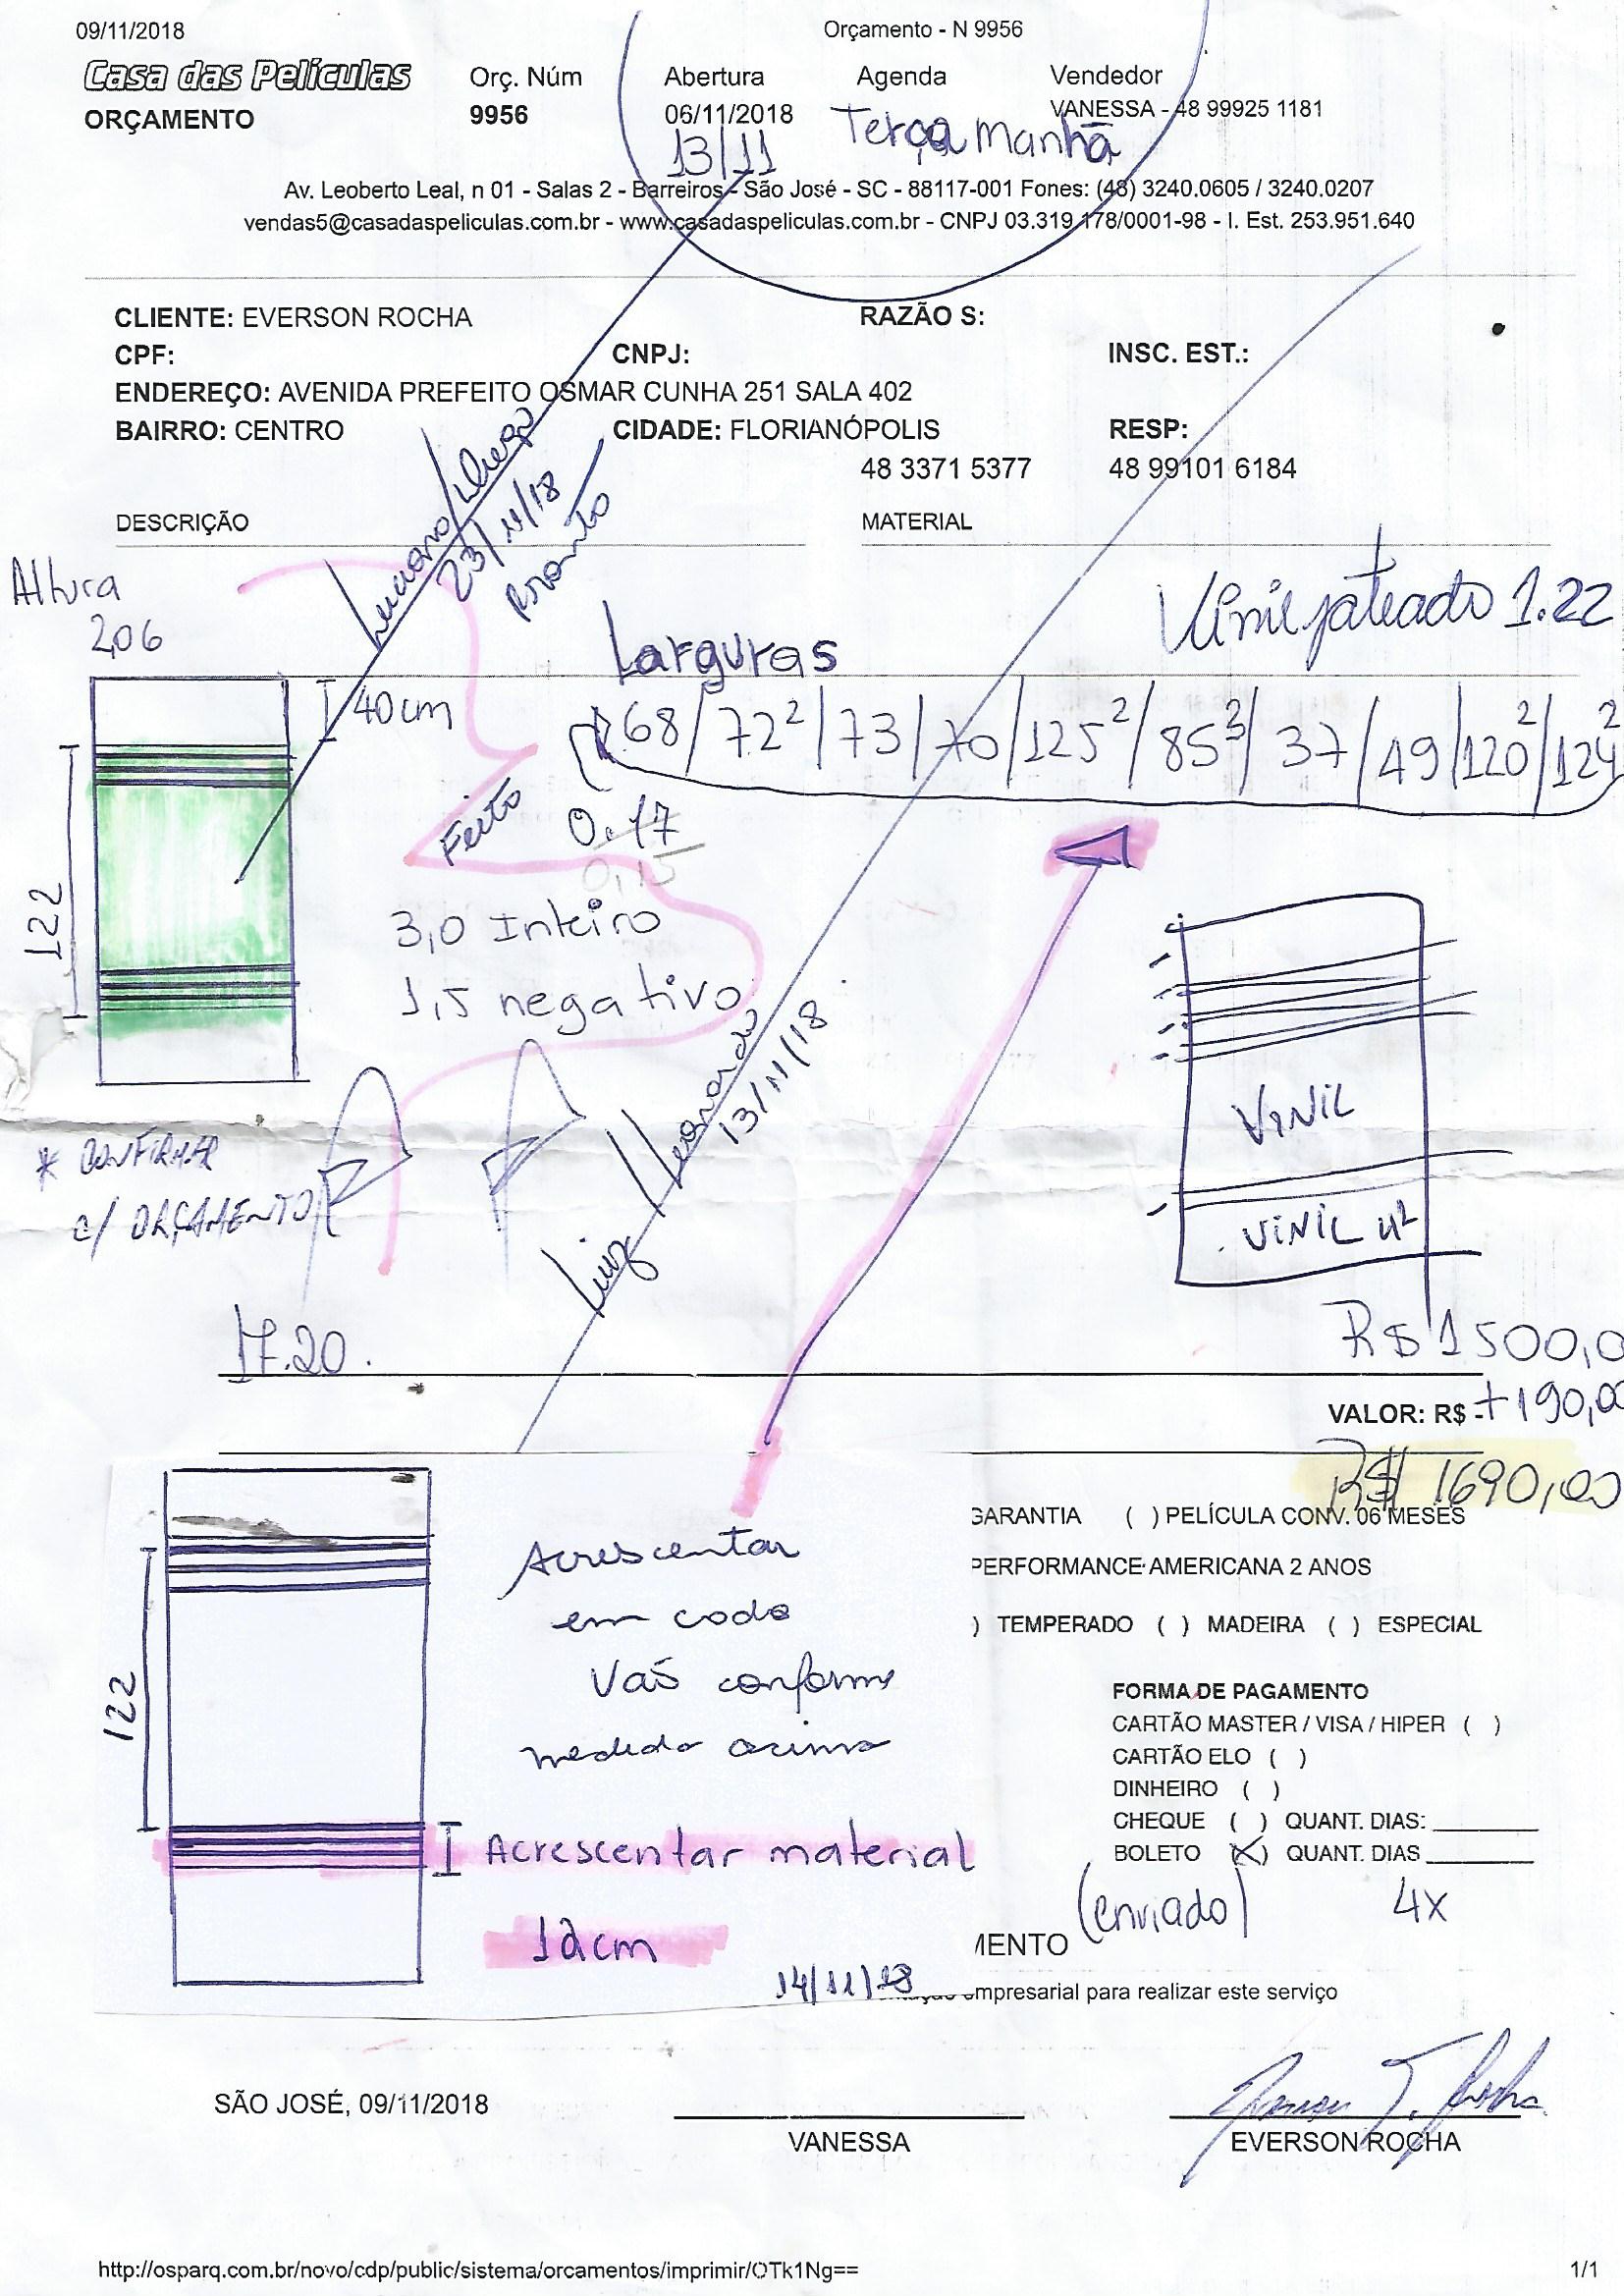 09/11/2018 Orçamento - N 9956
Casa das Películas Orç. Núm Abertura Agenda Vendedor
ORÇAMENTO 9956 06/11/2018 Terça Manhã VANESSA - 48 99925 1181
13/11
Av. Leoberto Leal, n 01 - Salas 2 - Barreiros - São José - SC - 88117-001 Fones: (48) 3240.0605 / 3240.0207
vendas5@casadaspeliculas.com.br - www.casadaspeliculas.com.br - CNPJ 03.319.178/0001-98 - I. Est. 253.951.640
CLIENTE: EVERSON ROCHA RAZÃO S:
CPF: CNPJ: INSC. EST.:
ENDEREÇO: AVENIDA PREFEITO OSMAR CUNHA 251 SALA 402
BAIRRO: CENTRO CIDADE: FLORIANÓPOLIS RESP:
48 3371 5377 48 99101 6184
Luciano/Diego
23/11/18
Pronto
DESCRIÇÃO MATERIAL
Altura
2,06
Vinil jateado 1.22
Larguras
40cm
68/72²/73/70/125²/85³/37/49/120²/124²
Feito
0.17
0,15
122
3,0 Inteiro
1,5 negativo
Luiz/Leonardo
13/11/18
VINIL
VINIL
* CONFIRMAR
c/ ORÇAMENTO
17.20.
R$ 1500,0
VALOR: R$ +190,00
R$ 1690,00
GARANTIA ( ) PELÍCULA CONV. 06 MESES
PERFORMANCE AMERICANA 2 ANOS
) TEMPERADO ( ) MADEIRA ( ) ESPECIAL
Acrescentar
em cada
Vão conforme
medida acima
122
Acrescentar material
12cm
14/11/18
FORMA DE PAGAMENTO
CARTÃO MASTER / VISA / HIPER ( )
CARTÃO ELO ( )
DINHEIRO ( )
CHEQUE ( ) QUANT. DIAS:
BOLETO (X) QUANT. DIAS
(enviado) 4x
MENTO
empresarial para realizar este serviço
SÃO JOSÉ, 09/11/2018
VANESSA EVERSON ROCHA
http://osparq.com.br/novo/cdp/public/sistema/orcamentos/imprimir/OTk1Ng== 1/1